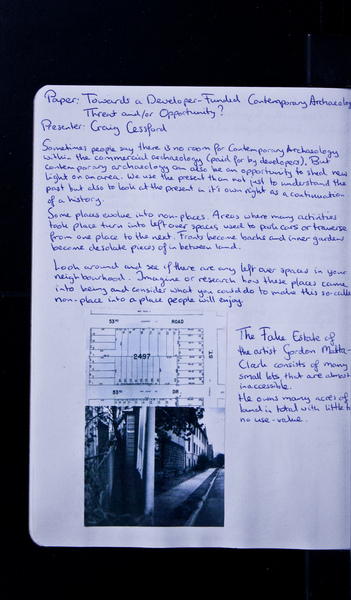 Paper: Towards a Developer-Funded Contemporary Archaeology
Threat and/or Opportunity?
Presenter: Craig Cessford
Sometimes people say there is no room for Contemporary Archaeology
within the commercial archaeology (paid for by developers). But
contemporary archaeology can also be an opportunity to shed new
light on an area. We use the present then not just to understand the
past but also to look at the present in it's own right as a continuation
of a history.
Some places evolve into non-places. Areas where many activities
took place turn into left over spaces used to park cars or traverse
from one place to the next. Fronts become backs and inner gardens
become desolate pieces of in between land.
Look around and see if there are any left over spaces in your
neighbourhood. Imagine or research how these places came
into being and consider what you could do to make this so-called
non-place into a place people will enjoy.
53RD ROAD
2497
ST.
53RD DR
The Fake Estate of
the artist Gordon Matta-
Clark consists of many
small lots that are almost
inaccessible.
He owns many acres of
land in total with little to
no use-value.